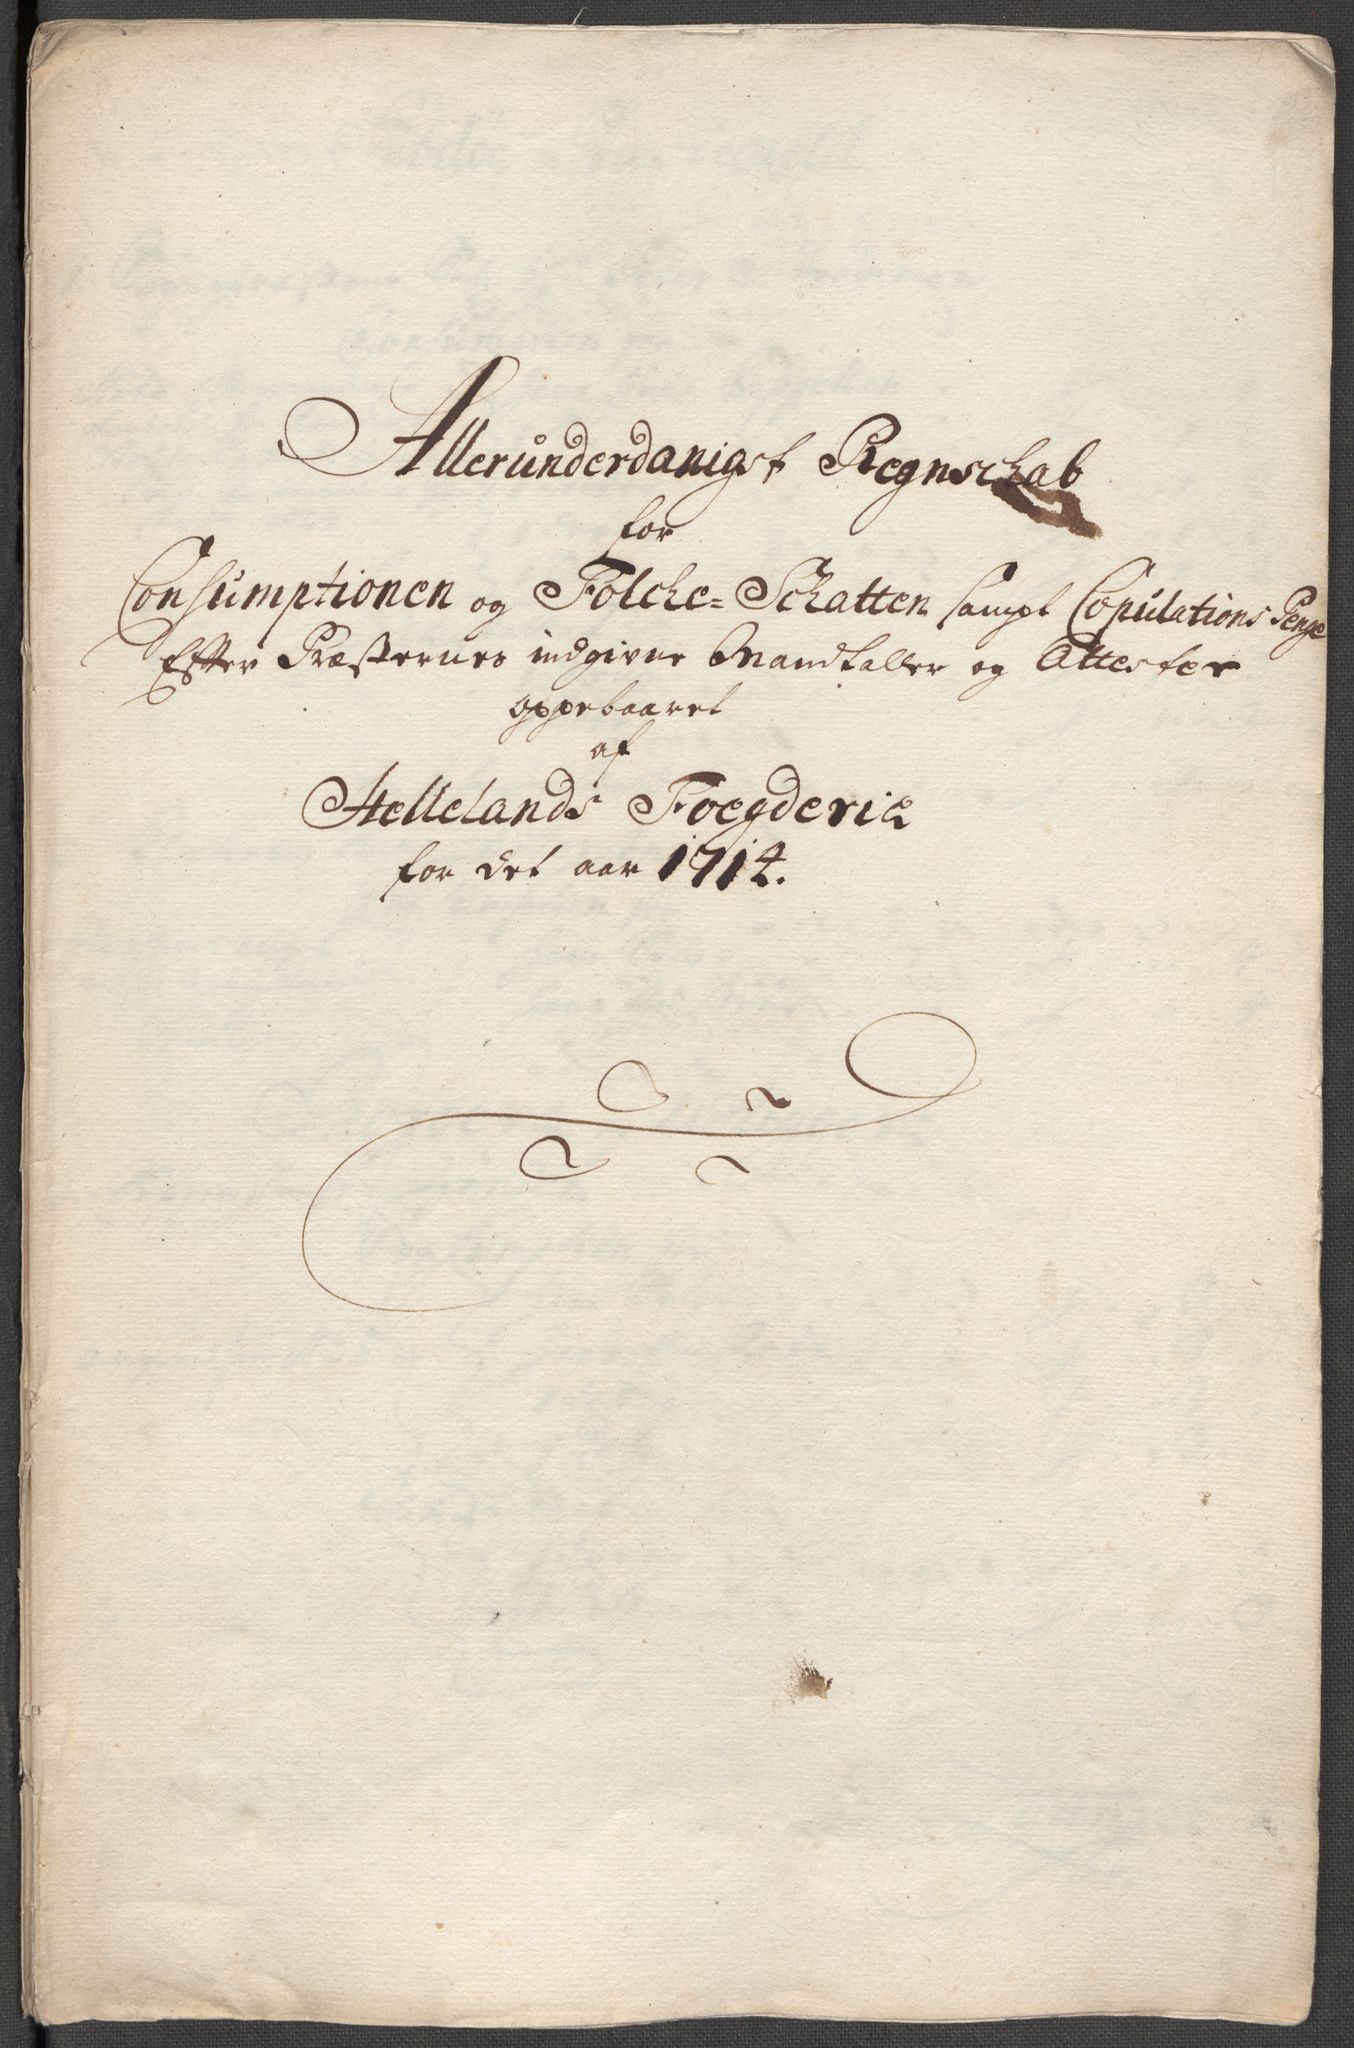 Allerunderdanigst Regnschab
for
Consumptionen og Folche=Schatten sampt Copulations Penge
Efter Præsternes indgivne Mandtaller og Attester
oppebaaret
af
Hellelands Foegderie
for det aar 1714.